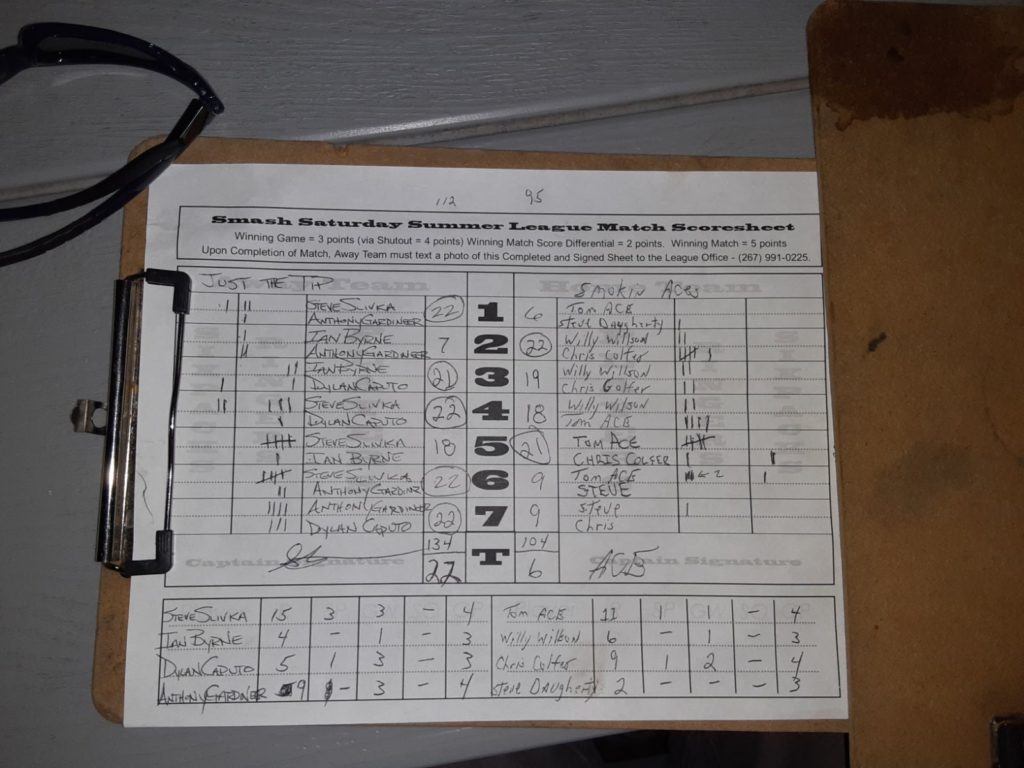 112 95
Smash Saturday Summer League Match Scoresheet
Winning Game = 3 points (via Shutout = 4 points) Winning Match Score Differential = 2 points. Winning Match = 5 points
Upon Completion of Match, Away Team must text a photo of this Completed and Signed Sheet to the League Office - (267) 991-0225.
JUST THE TIP Smokin Aces
STEVE SLIVKA 22 1 6 Tom ACE
ANTHONY GARDINER Steve Daugherty
IAN BYRNE 7 2 22 Willy Willson
ANTHONY GARDNER Chris Colfer
IAN BYRNE 21 3 19 Willy Willson
DYLAN CAPUTO Chris Golfer
STEVE SLIVKA 22 4 18 Willy Wilson
DYLAN CAPUTO Tom ACE
STEVE SLIVKA 18 5 21 TOM ACE
IAN BYRNE CHRIS COLFER
STEVE SLIVKA 22 6 9 Tom ACE
ANTHONY GARDINER STEVE
ANTHONY GARDINER 22 7 9 Steve
DYLAN CAPUTO Chris
134 T 104
Captain Signature 22 6 ACE Captain Signature
STEVE SLIVKA 15 3 3 - 4 Tom ACE 11 1 1 - 4
IAN BYRNE 4 - 1 - 3 Willy Willson 6 - 1 - 3
DYLAN CAPUTO 5 1 3 - 3 Chris Colfer 9 1 2 - 4
ANTHONY GARDNER 9 - 3 - 4 Steve Daugherty 2 - - - 3